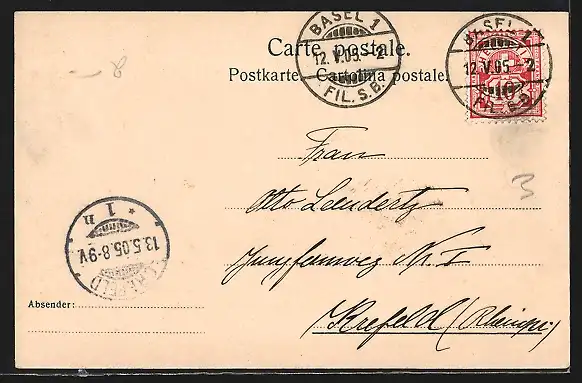 Carte postale.
Postkarte. Cartolina postale.
BASEL 1
12.V.05. 2
FIL. S.B.
BASEL 1
12.V.05 2
FIL. S.B.
10
8
Frau
Otto Leendertz
3
Jungfernweg Nr. I
Krefeld
CREFELD
13.5.05.8-9V.
* 1 n
Absender: